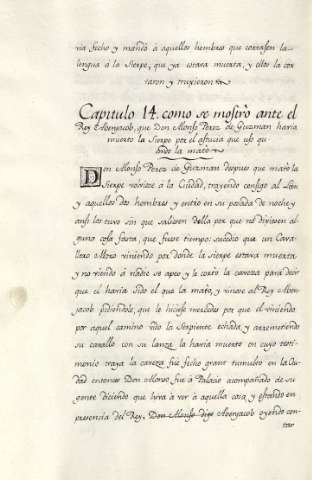 via fecho y mandó a aquellos hombres que cortasen la
lengua á la Sierpe, que ya estava muerta, y ellos la cor
taron y truxieron
Capitulo 14. como se mostro ante el
Rey Abenjacob, que Don Alonso Perez de Guzman havia
muerto la Sierpe por el astucia que usó qu
ando la mató
Don Alonso Perez de Guzman despues que mató la
Sierpe volviose á la Ciudad, trayendo consigo al Leon
y aquellos dos hombres y entró en su posada de noche, y
ansi los tuvo sin que saliesen della por que no dixiesen al
guna cosa fasta, que fuese tiempo; sucedió que un Cava
llero Moro viniendo por donde la Sierpe estava muerta
y no viendo á nadie se apeo y le cortó la caveza para decir
que él havia sido el que la mató, y vinose al Rey Aben
jacob pidiendole, que le hiciese mercedes por que él viniendo
por aquel camino vido la Serpiente echada, y arremetiendo
su cavallo con su lanza la havia muerto en cuyo testi
monio traya la caveza fue fecho grant tumulto en la Ciu
dad entonces Don Alonso fue á Palacio acompañado de su
gente diciendo que iva a ver á aquella cosa y estando en
presencia del Rey, Don Alonso dixo Abenjacob oyendo con
tar